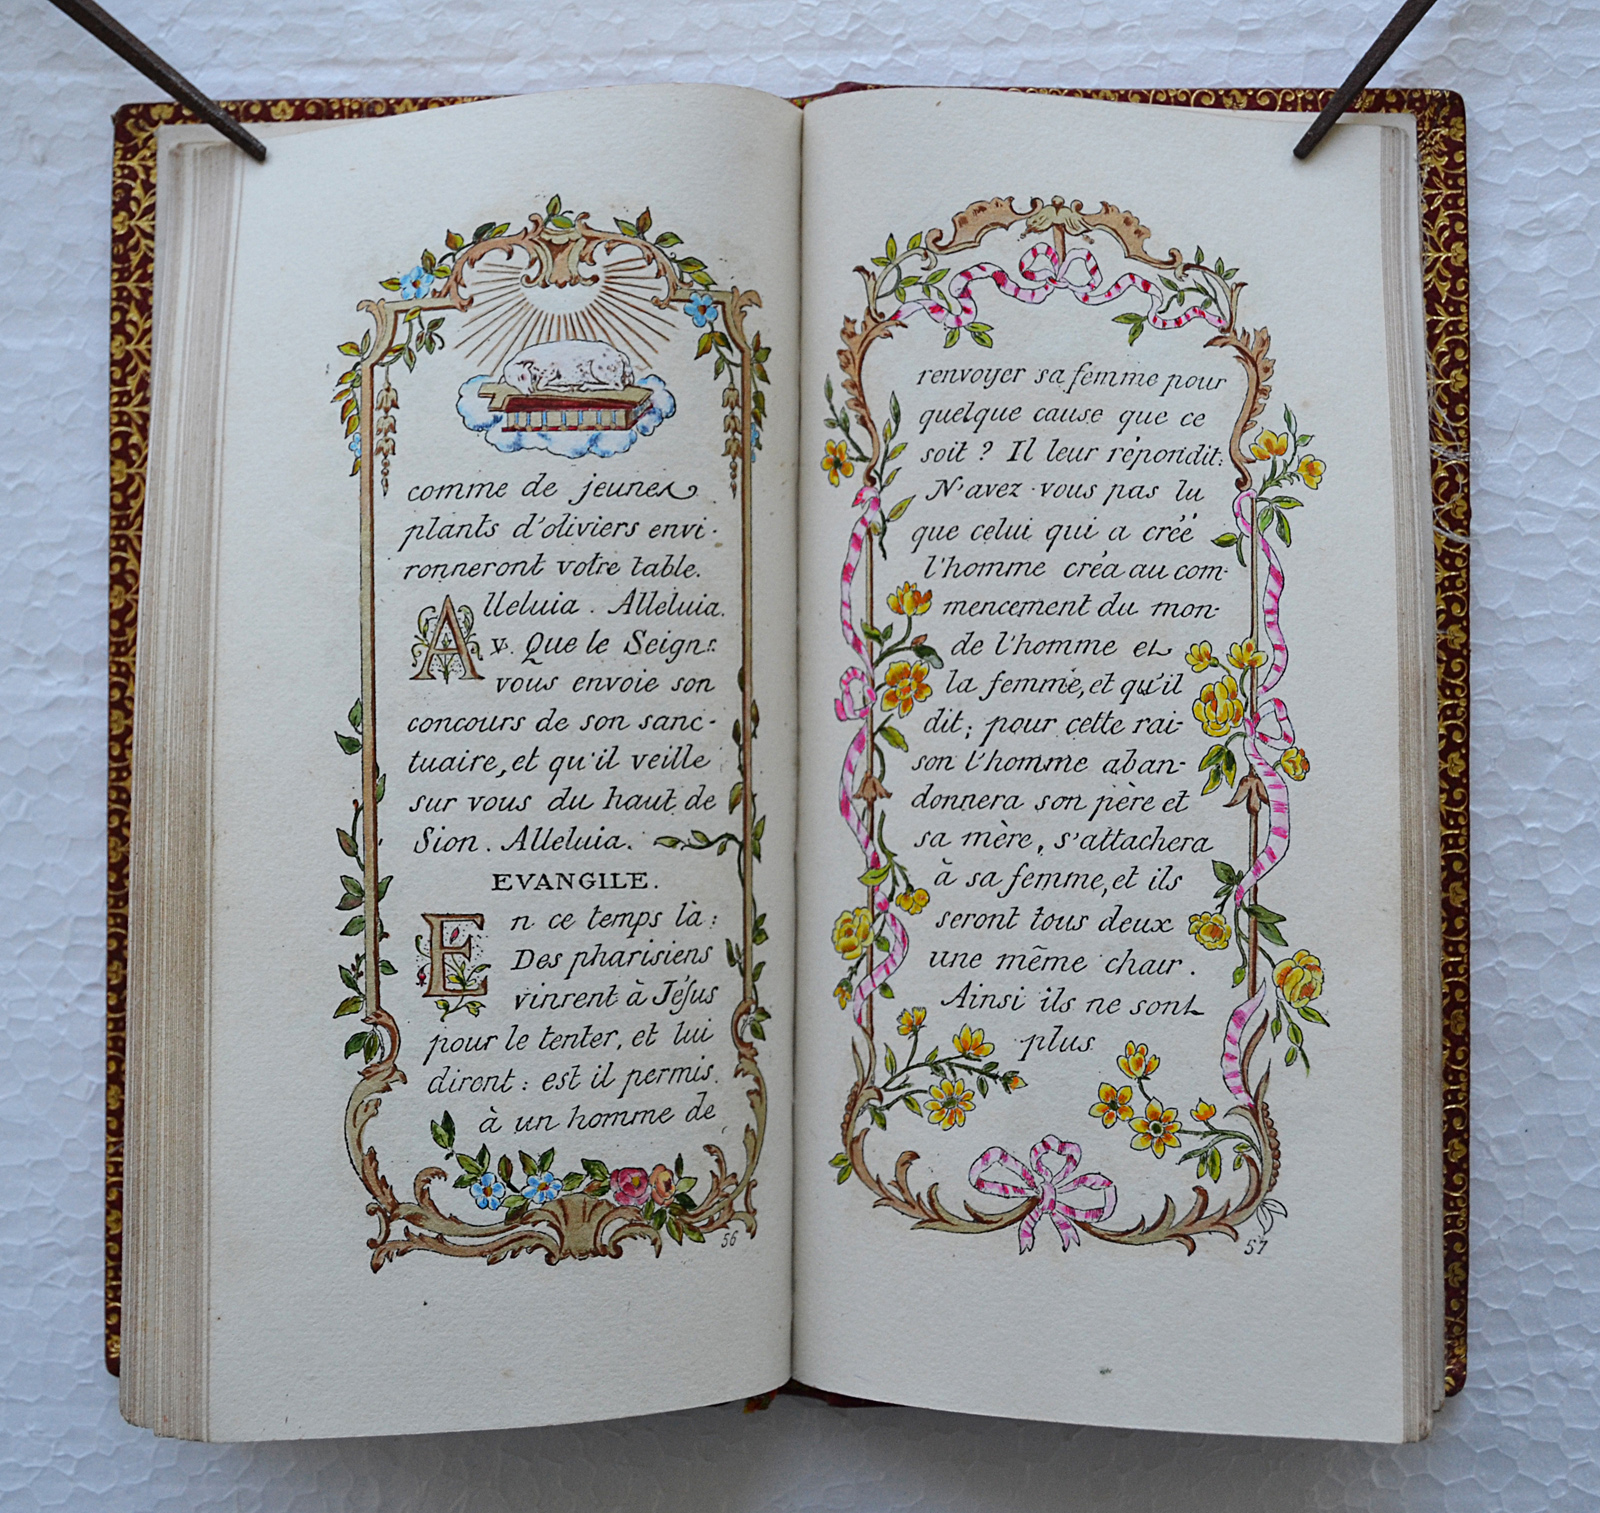 comme de jeunes
plants d'oliviers envi-
ronneront votre table.
Alleluia. Alleluia.
v. Que le Seignr.
vous envoie son
concours de son sanc-
tuaire, et qu'il veille
sur vous du haut de
Sion. Alleluia.
EVANGILE.
En ce temps là:
Des pharisiens
vinrent à Jésus
pour le tenter, et lui
dirent: est il permis
à un homme de
56
renvoyer sa femme pour
quelque cause que ce
soit? Il leur répondit:
N'avez-vous pas lu
que celui qui a créé
l'homme créa au com-
mencement du mon-
de l'homme et
la femme, et qu'il
dit; pour cette rai-
son l'homme aban-
donnera son père et
sa mère, s'attachera
à sa femme, et ils
seront tous deux
une même chair.
Ainsi ils ne sont
plus
57